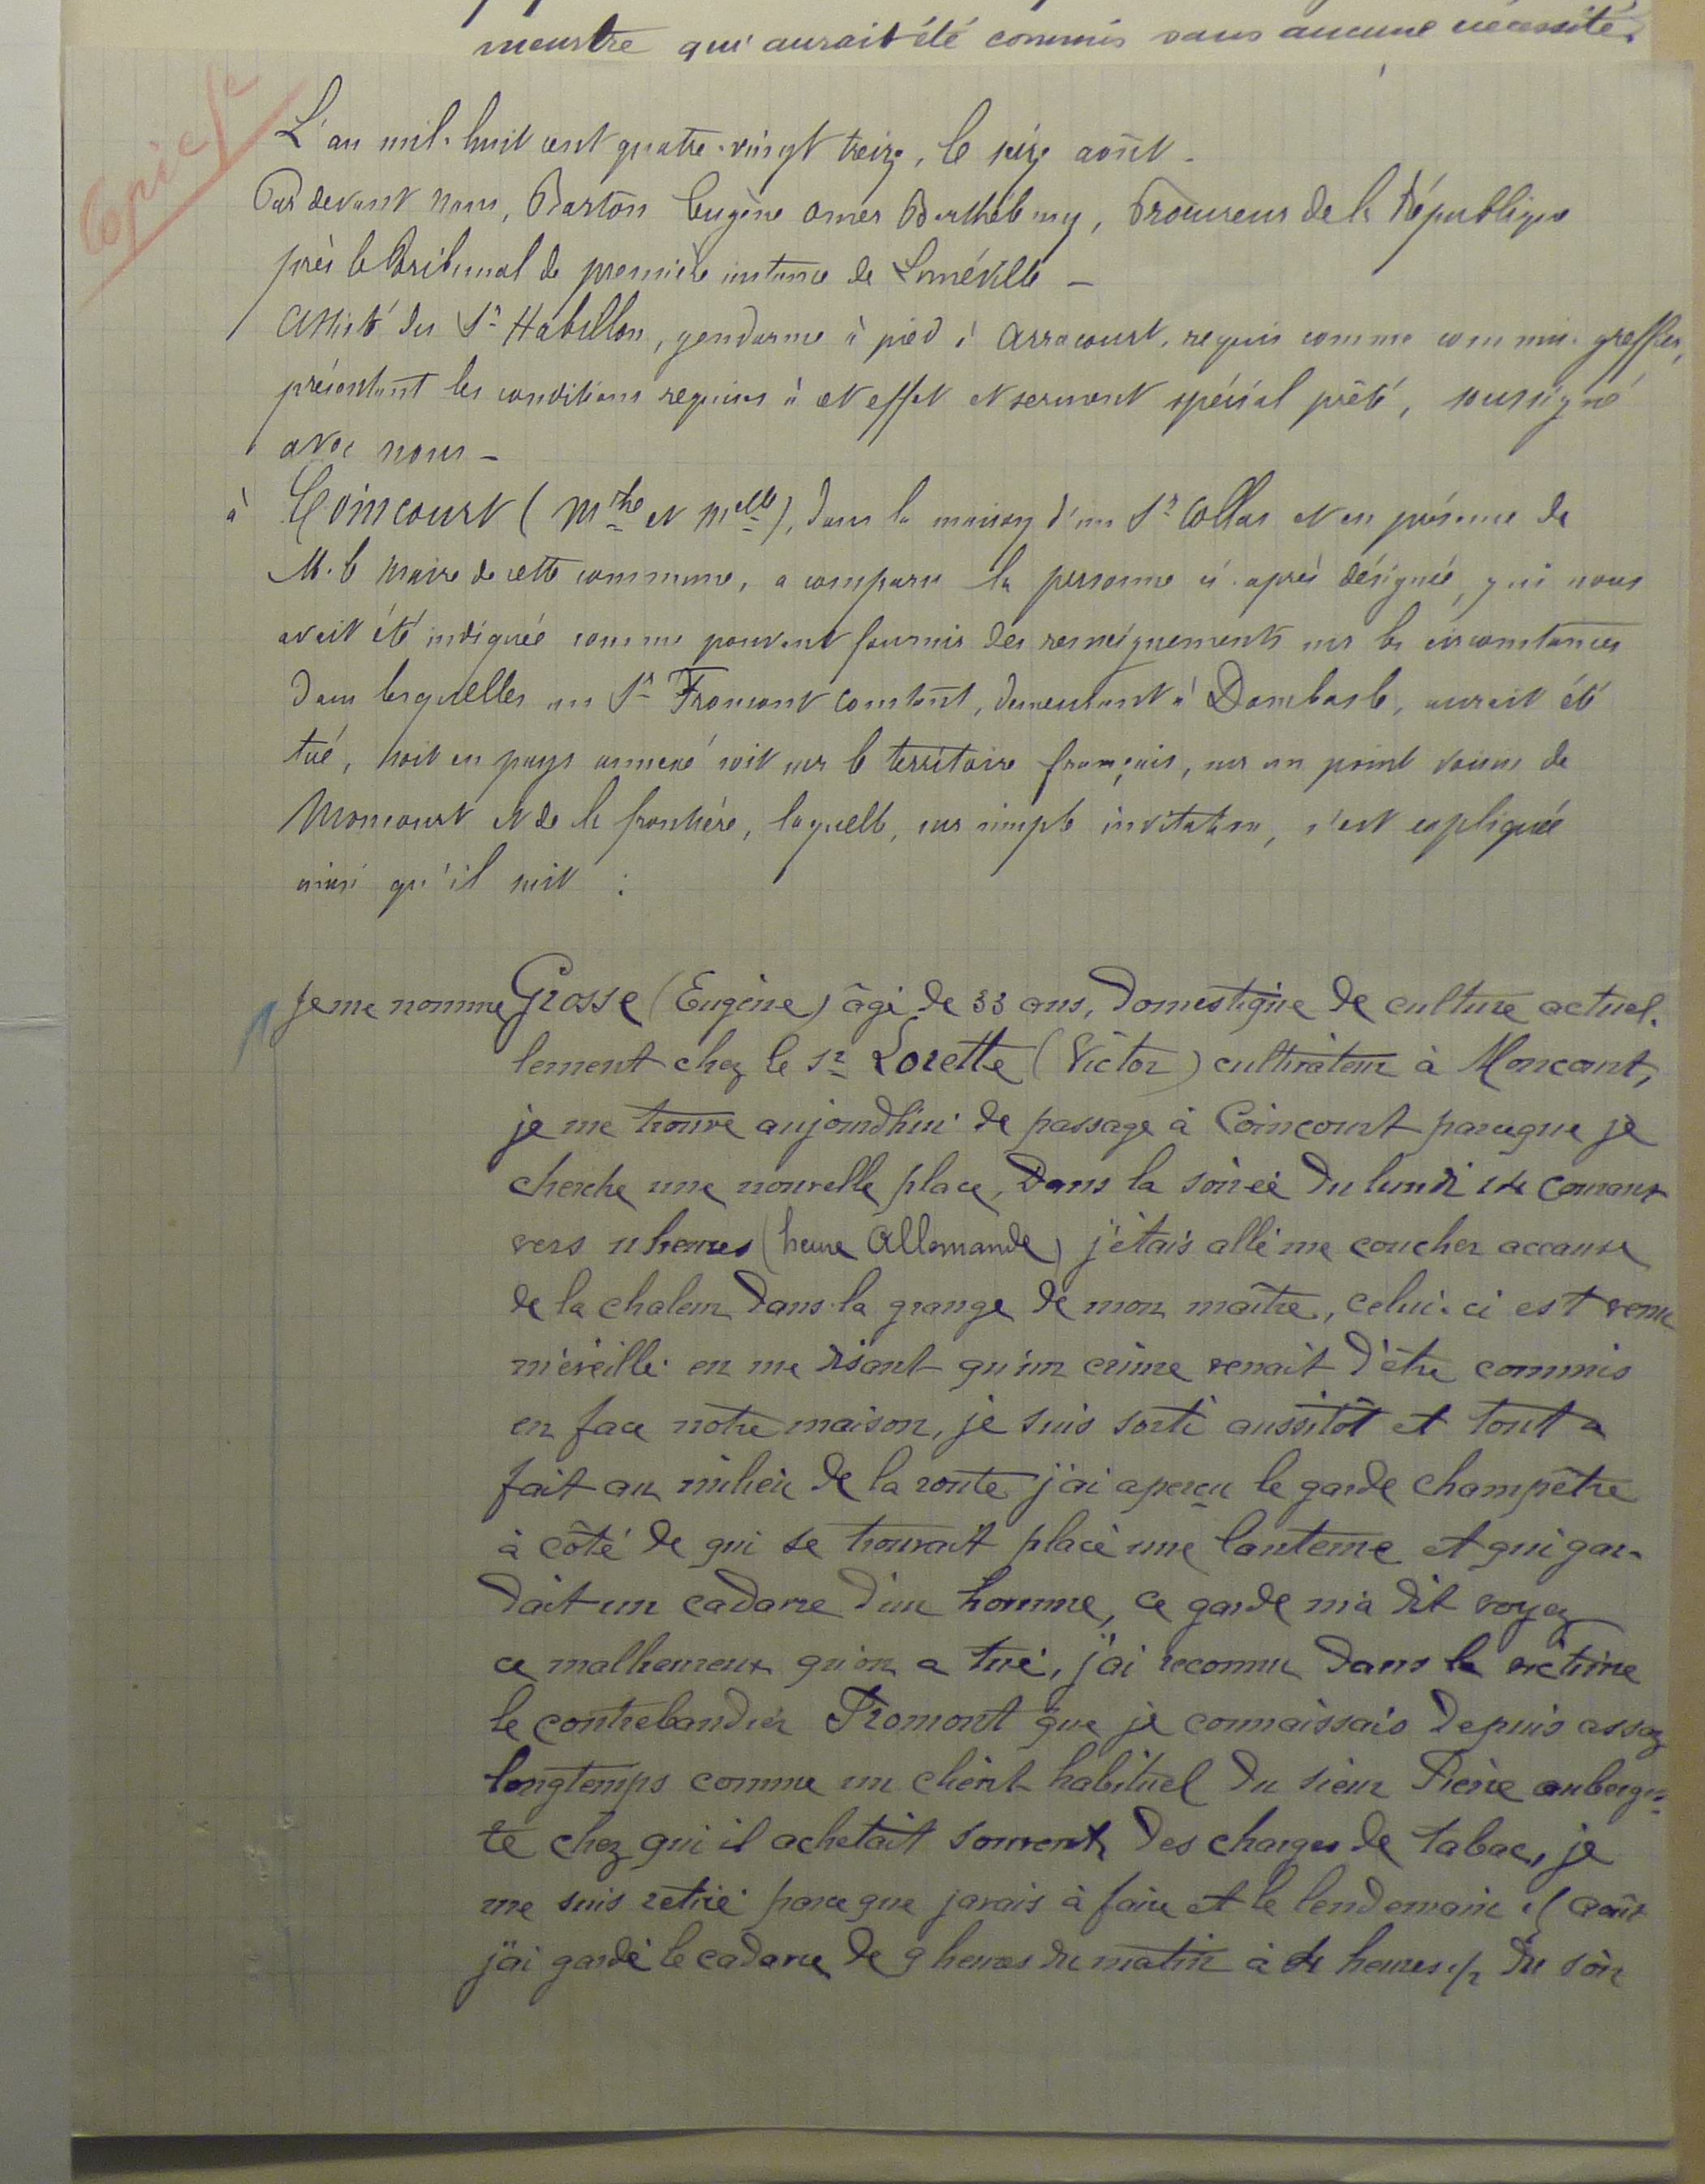 meurtre qui aurait été commis sans aucune nécessité.
Copie
L'an mil-huit cent quatre-vingt treize, le seize août -
Par devant nous, Barton Eugène Omer Barthélemy, Procureur de la République
près le Tribunal de première instance de Lunéville -
Assisté du Sr Habillon, gendarme à pied à Arracourt, requis comme commis-greffier,
présentant les conditions requises à cet effet et serment spécial prêté, soussigné
avec nous -
à Coincourt (Mthe et Melle), dans la maison d'un Sr Collas et en présence de
M. le Maire de cette commune, a comparu la personne ci-après désignée, qui nous
avait été indiquée comme pouvant fournir des renseignements sur les circonstances
dans lesquelles un Sr Fromont Constant, demeurant à Dombasle, aurait été
tué, soit en pays annexé soit sur le territoire français, sur un point voisin de
Moncourt et de la frontière, laquelle, sur simple invitation, s'est expliquée
ainsi qu'il suit :
Je me nomme Grosse (Eugène) âgé de 33 ans, domestique de culture actuel-
lement chez le Sr Lorette (Victor) cultivateur à Moncourt,
je me trouve aujourd'hui de passage à Coincourt parceque je
cherche une nouvelle place, Dans la soirée du lundi 14 courant
vers 11 heures (heure Allemande) j'étais allé me coucher accause
de la chaleur dans la grange de mon maître, celui-ci est venu
m'éveillé en me disant qu'un crime venait d'être commis
en face notre maison, je suis sorti aussitôt et tout a
fait au milieu de la route j'ai aperçu le garde champêtre
à côté de qui se trouvait placé une lanterne et qui gar-
dait un cadavre d'un homme, ce garde m'a dit voyez
ce malheureux qu'on a tué, j'ai reconnu dans la victime
le contrebandier Fromont que je connaissais depuis assez
longtemps comme un client habituel du sieur Pierre aubergis-
te chez qui il achetait souvent des charges de tabac, je
me suis retiré parceque javais à faire et le lendemain 15 août
j'ai gardé le cadavre de 9 heures du matin à 4 heures 1/2 du soir